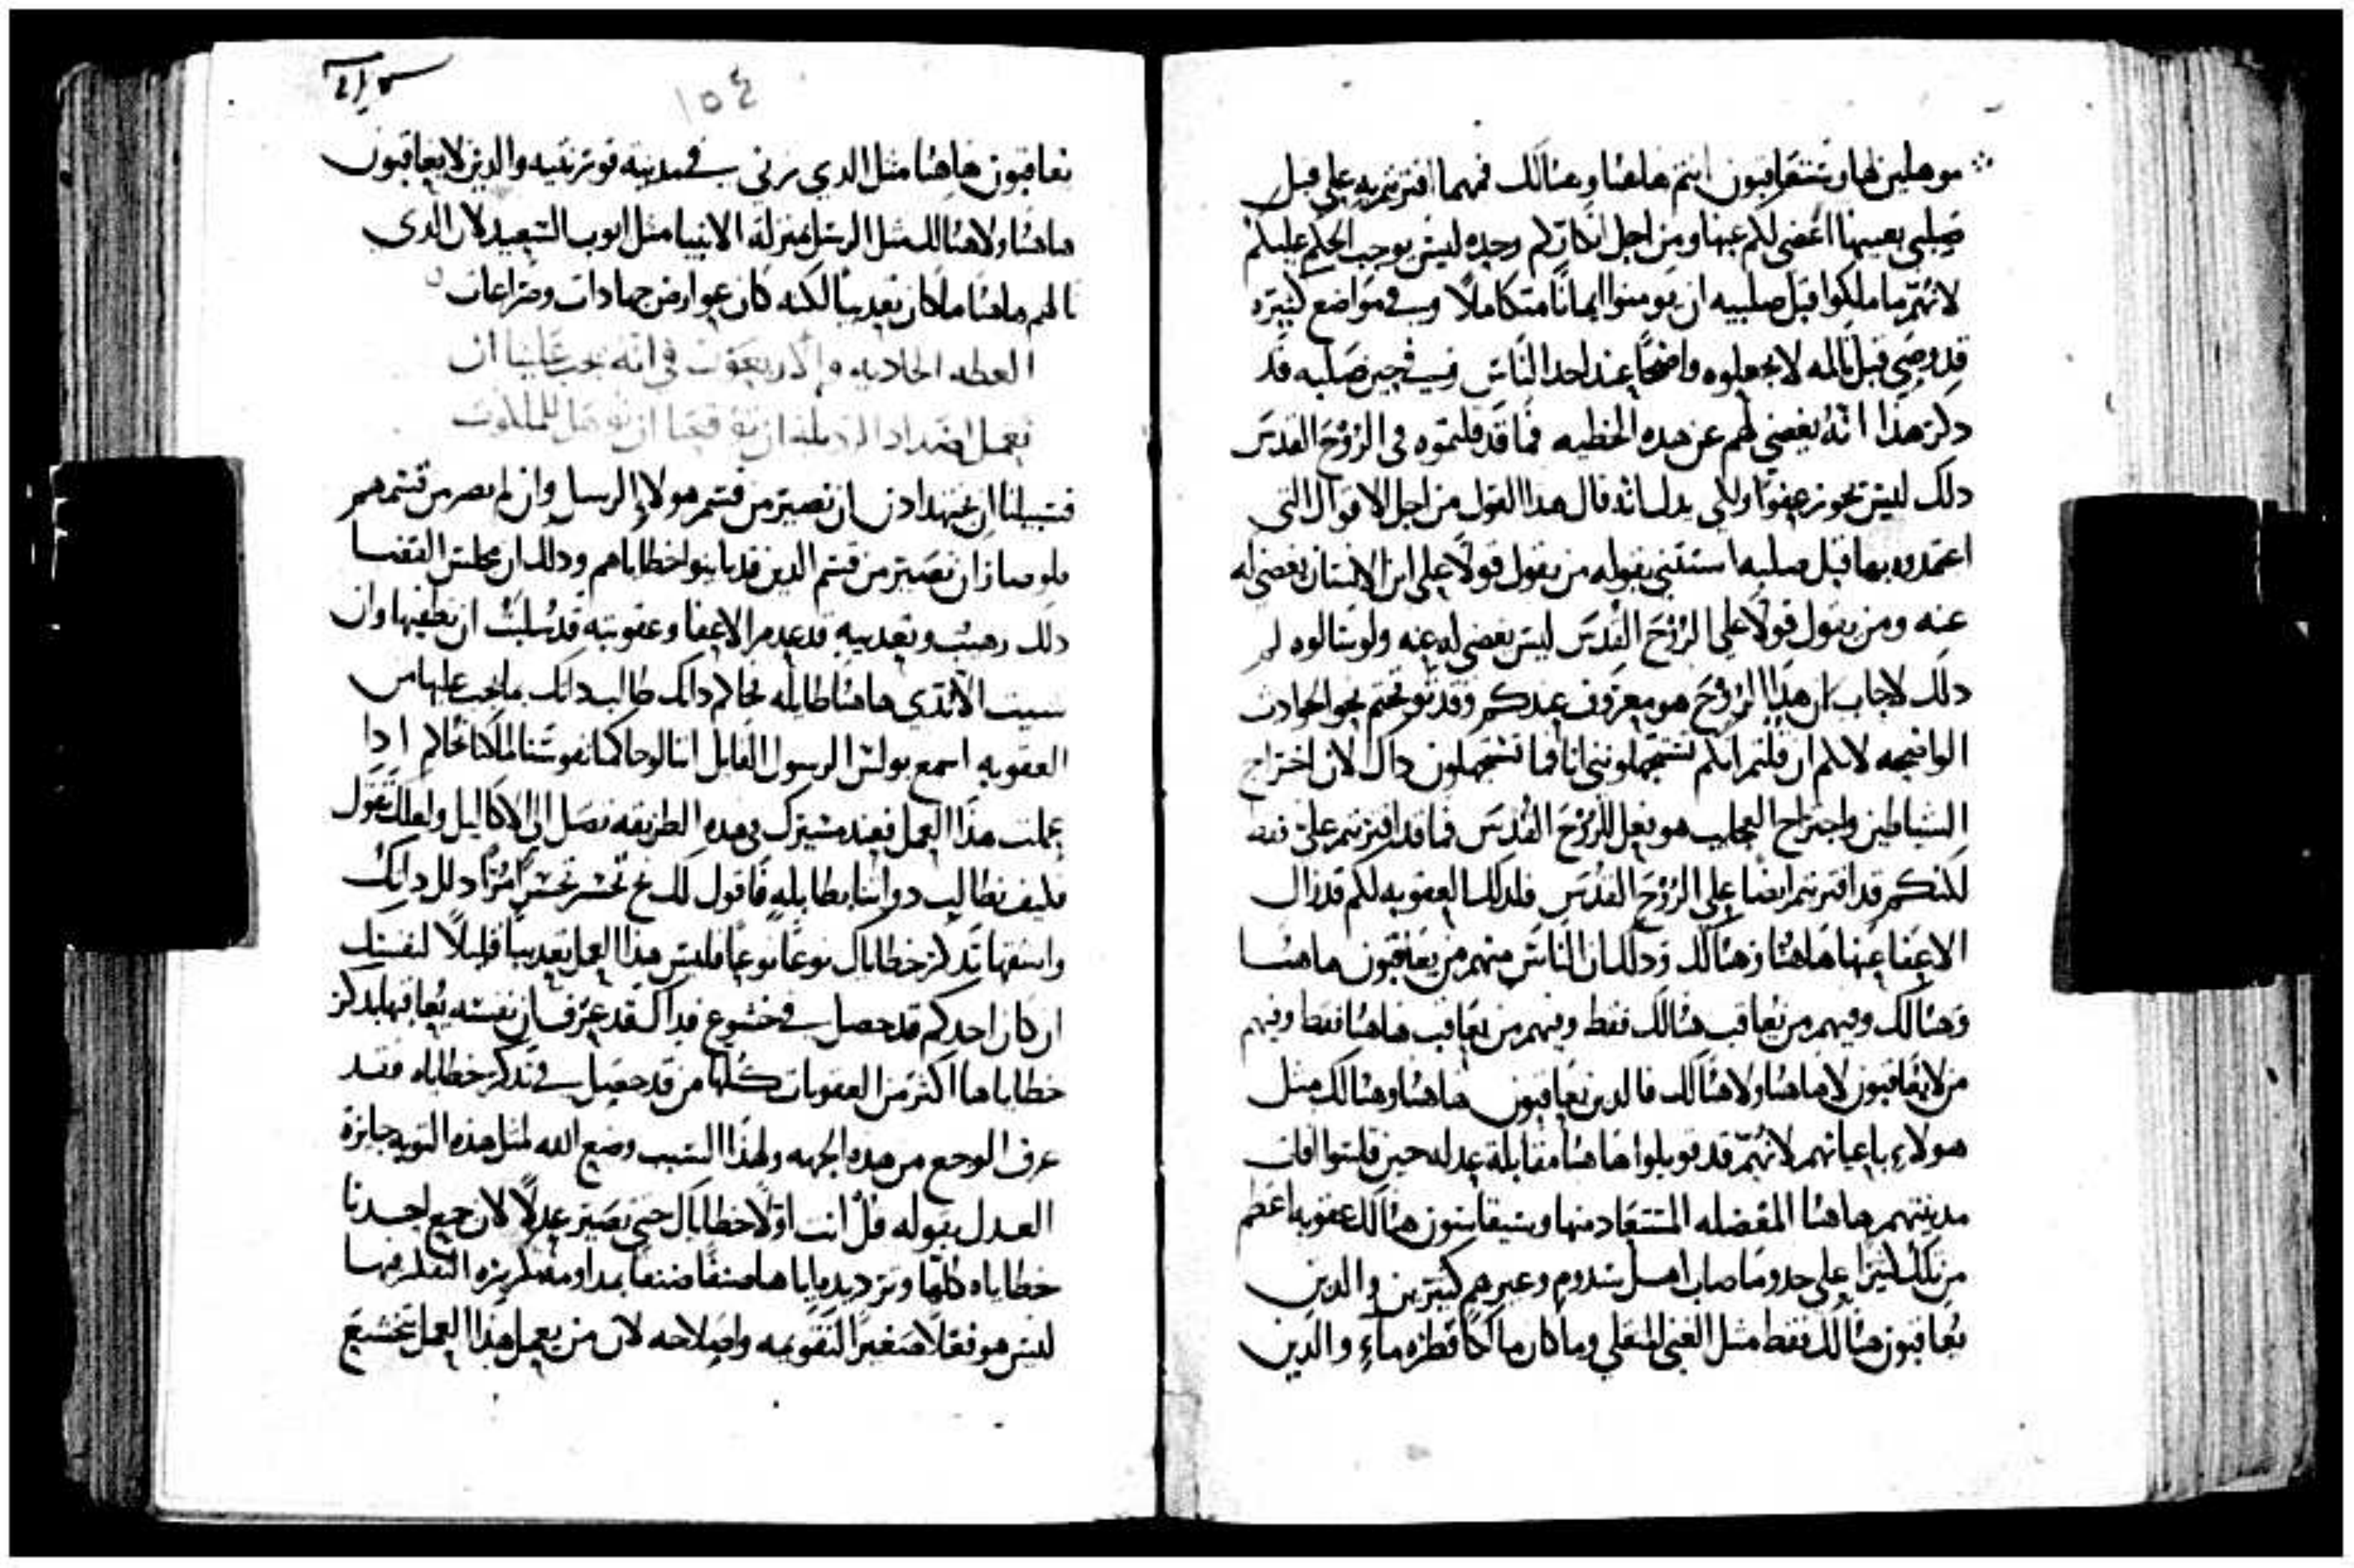 موهلين لها وستعاقبون انتم هاهنا وهنالك فمهما افتريتم به علي قبل
صلبي بعينها اغضي لكم عنها ومن اجل انكاركم وحده ليس يوجب الحكم عليكم
لانهم ما ملكوا قبل صلبيه ان يومنوا ايمانًا متكاملًا وفي مواضع كثيره
قد وصي قبل تالمه لا يجعلوه واضحًا عند احد الناس وفي حين صلبه قد
دكر هذا انه يغضي لهم عن هده الخطيه فما قد قلتموه في الروح القدس
دلك ليس يحوز عفوًا قال هدا القول من اجل الاقوال التي
اعتمدوه بها قبل صلبه استثني بقوله من يقول قولًا علي ابن الانسان يغضي له
عنه ومن يقول قولًا علي الروح القدس ليس يغضي له عنه ولو سالوه لم
دلك لاجاب ان هدا الروح هو معروف عندكم وقد توقحتم نحو الحوادث
الواضحه لانكم ان قلتم انكم تستجهلونني انا فما تستجهلون داك لان اخراج
الشياطين واجتراح العجايب هو فعل للروح القدس فما قد افتريتم علي فقط
لكنكم قد افتريتم ايضًا علي الروح القدس فلدلك العقوبه لكم قد زال
الاعفا عنها هاهنا وهنالك ودلك ان الناس منهم من يعاقبون هاهنا
وهنالك وفيهم من يعاقب هنالك فقط وفيهم من يعاقب هاهنا فقط وفيهم
من لا يعاقبون لا هاهنا ولا هنالك فالدين يعاقبون هاهنا وهنالك مثل
هولاء باعيانهم لانهم قد قوبلوا هاهنا مقابلة عدله حين قاسوا افات
مدينتهم هاهنا المعضله المستعاد منها وسيقاسون هنالك عقوبه اعظم
من تلك كثيرًا علي حدو ما صاب اهل سدوم وغيرهم كثيرين والدين
يعاقبون هنالك فقط مثل الغني المتقلي وما كان مالكًا قطره ماء والدين
١٥٤
يعاقبون هاهنا مثل الدي زني في مدينه قورنتيه والدين لا يعاقبون
هاهنا ولا هنالك مثل الرسل بمنزلة الانبيا مثل ايوب السعيد لان الدي
نالهم هاهنا ما كان تعديبًا لكنه كان عوارض جهادات وصراعات
العظه الحاديه والاربعون في انه يجب علينا ان
نعمل اضداد الرديله ان توقعنا ان نوهل للملكوت
فسبيلنا ان نجتهد ادن ان نصير من قسم هولاء الرسل وان لم نصر من قسمهم
فلو صار ان نصير من قسم الدين قد باينوا خطاياهم ودلك ان مجلس القضا
دلك رهيب وتعديبه قد عدم الاعفا وعقوبته قد سلبت ان نطفيها وان
شيت الا تدي هاهنا طايله فحاكم داتك طالب داتك بما يجب عليها من
العقوبه اسمع بولس الرسول القايل اننا لو حاكمنا نفوسنا لما كنا نحاكم ادا
عملت هذا العمل فعند مسيرك في هده الطريقه تصل الي الاكاليل ولعلك تقول
فكيف نطالب دواتنا بمطابله فاقول لك نح تحسر تحسرًا مرًا دلل داتك
واشقها تدكر خطاياك نوعًا نوعًا فليس هدا العمل تعديبًا قليلًا لنفسك
ان كان احدكم قد حصل في خشوع فداك قد عرف ان نفسه يعاقبها بدكر
خطاياها اكثر من العقوبات كلها من قد حصل في تدكر خطاياه فقد
عرف الوجع من هده الجهه ولهذا السبب وضع الله لمثل هذه التوبه جايزة
العدل بقوله قل انت اولًا خطاياك حتي تصير عدلًا لان جمع احدنا
خطاياه كلها وترديده اياها صنفًا صنفًا بمداومه التفكر فيها
ليس هو فعلًا صغيرًا لتقويمه واصلاحه لان من يعمل هذا العمل يتخشع